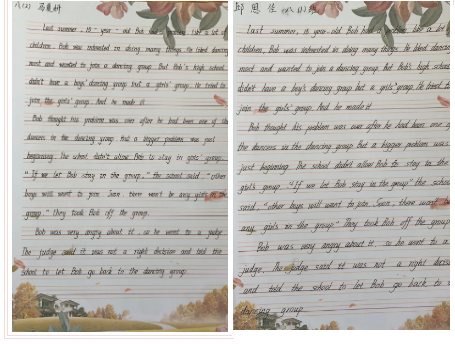 八(2)
Last summer, 15-year-old Bob was dancing like a lot of
children. Bob was interested in doing many things. He liked dancing
most and wanted to join a dancing group. But Bob's high school
didn't have a boys' dancing group but a girls' group. He tried to
join the girls' group. And he made it.
Bob thought his problem was over after he had been one of the
dancers in the dancing group. But a bigger problem was just
beginning. The school didn't allow Bob to stay in girls' group.
"If we let Bob stay in the group," the school said, "other
boys will want to join. Soon, there won't be any girls in the
group." They took Bob off the group.
Bob was very angry about it, so he went to a judge.
The judge said it was not a right decision and told the
school to let Bob go back to the dancing group.
邱恩佳 八(1)班
Last summer, 15-year-old Bob had a problem like a lot of
children. Bob was interested in doing many things. He liked dancing
most and wanted to join a dancing group. But Bob's high school
didn't have a boy's dancing group but a girls' group. He tried to
join the girls' group. And he made it.
Bob thought his problem was over after he had been one of
the dancers in the dancing group. But a bigger problem was
just beginning. The school didn't allow Bob to stay in the
girls' group. "If we let Bob stay in the group," the school
said, "other boys will want to join. Soon, there won't be
any girls in the group." They took Bob off the group.
Bob was very angry about it, so he went to a
judge. The judge said it was not a right decision
and told the school to let Bob go back to
dancing group.